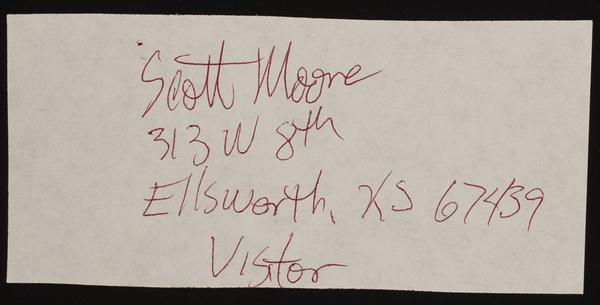 Scott Moore
313 W 8th
Ellsworth, KS 67439
Visitor